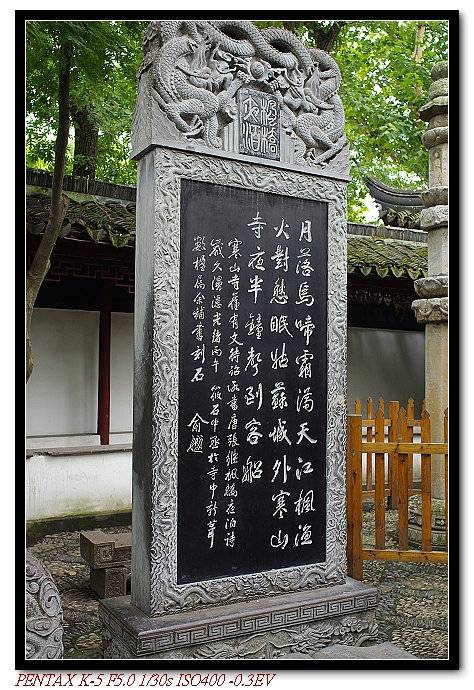 楓橋
夜泊
月落烏啼霜滿天江楓漁
火對愁眠姑蘇城外寒山
寺夜半鐘聲到客船
寒山寺舊有文待詔所書唐張繼楓橋夜泊詩
歲久漫漶光緒丙午筱石中丞於寺中新葺
數楹屬余補書刻石
俞樾
PENTAX K-5 F5.0 1/30s ISO400 -0.3EV